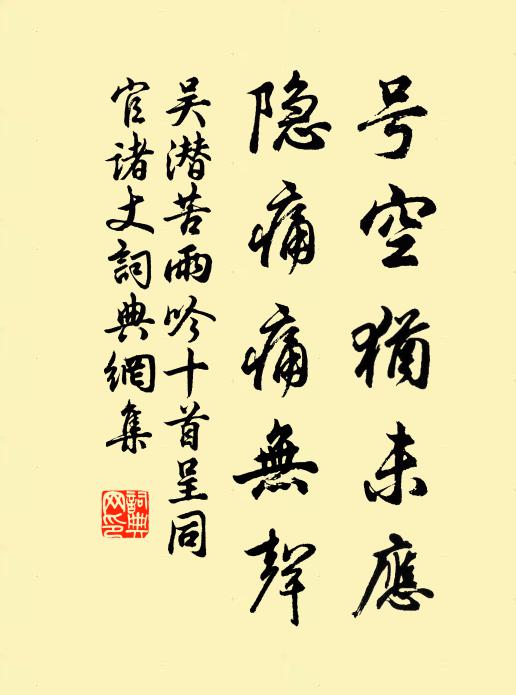 号空猶未應
隐痛痛無聲
吴潜苦雨吟十首呈同
官诸丈詞典網集
詞典网印